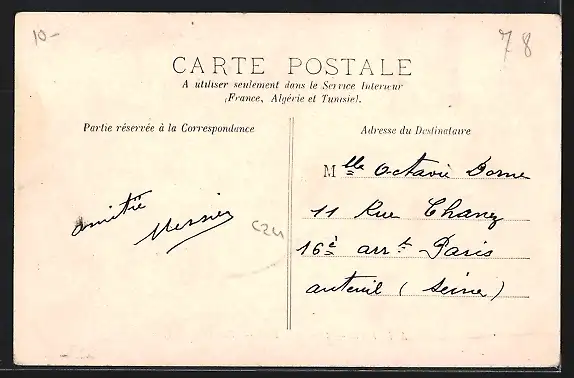 10-
78
CARTE POSTALE
A utiliser seulement dans le Service Intérieur
(France, Algérie et Tunisie).
Partie réservée à la Correspondance
Adresse du Destinataire
amitié
Messier
C24
Mlle Octavie Dorne
11 Rue Chanez
16è arrt Paris
auteuil (Seine)